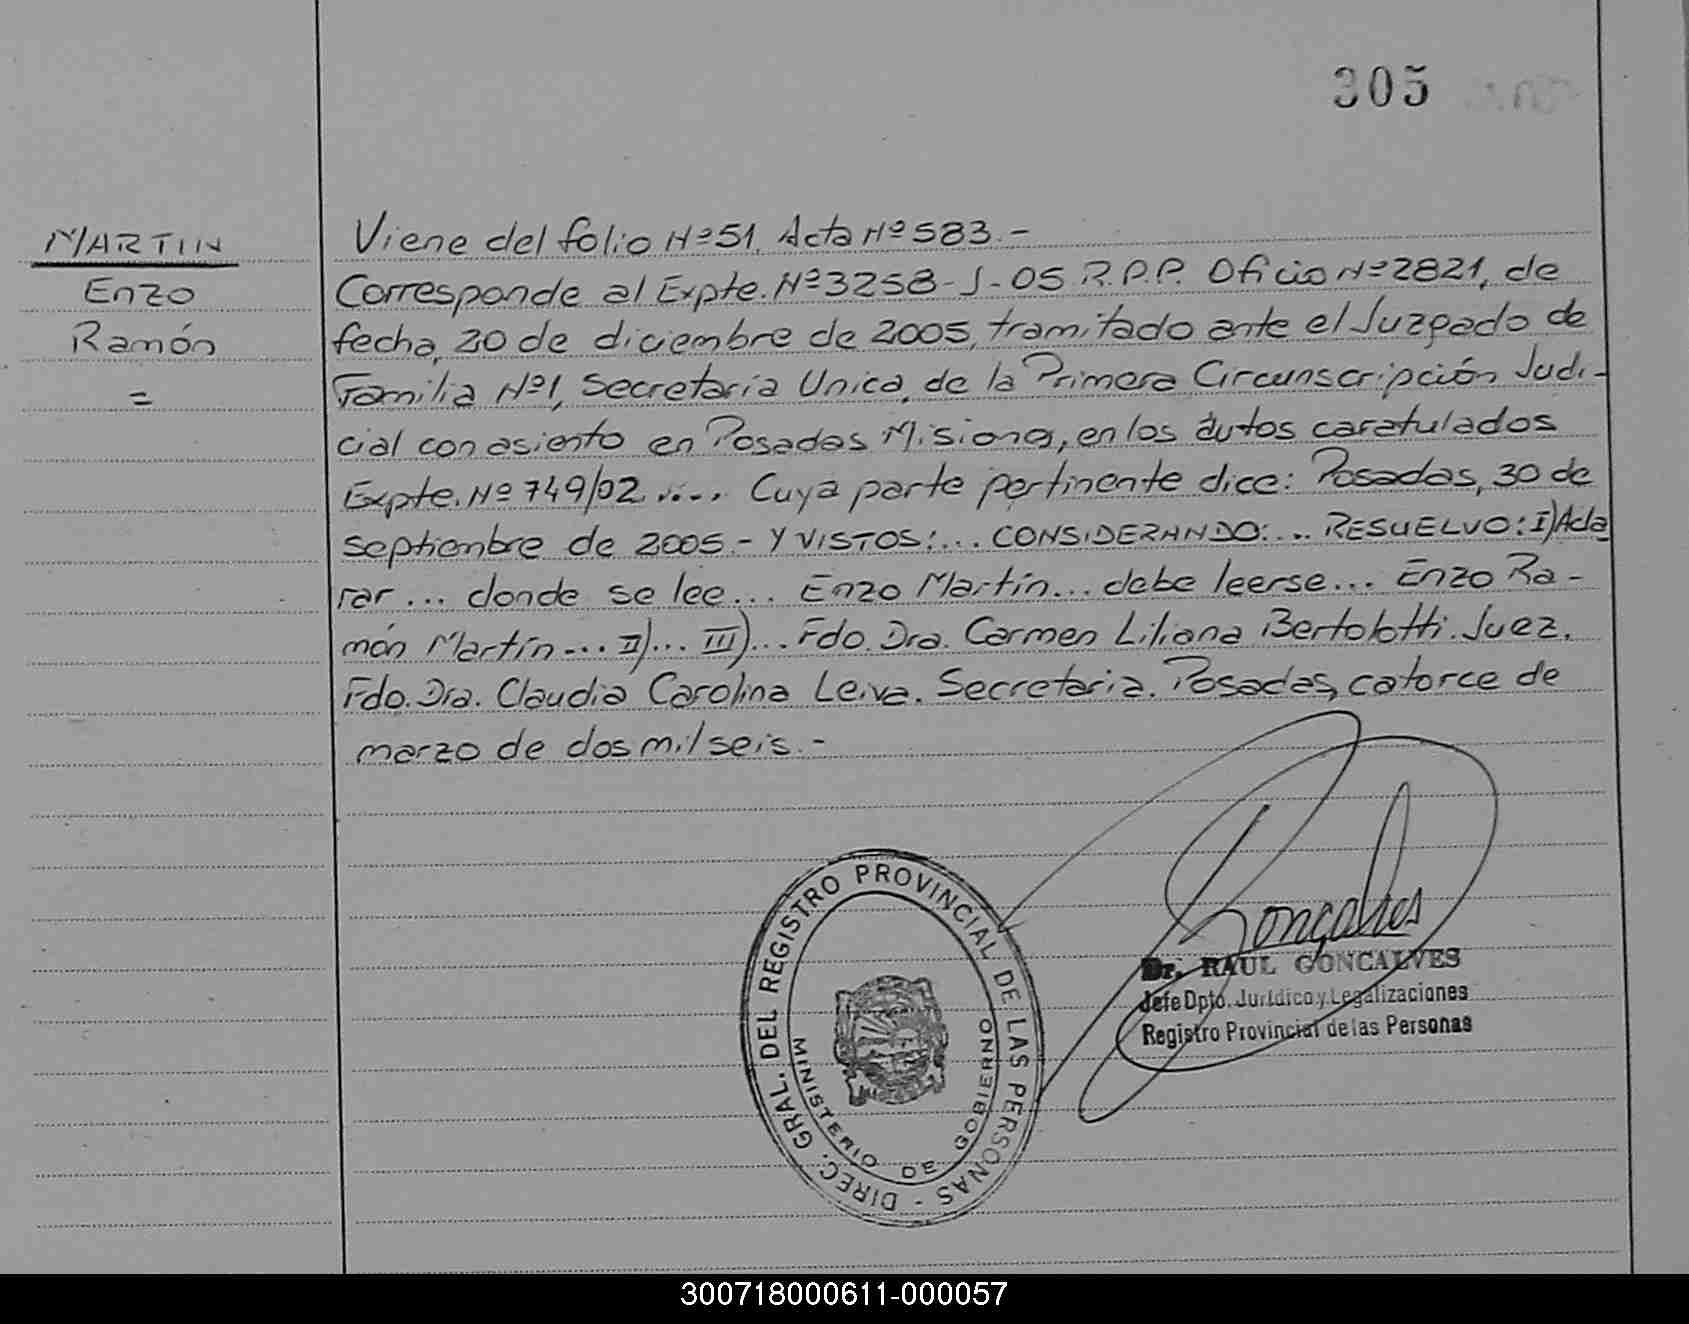 305
MARTIN
Enzo
Ramón
=
Viene del folio Nº51. Acta Nº583.-
Corresponde al Expte. Nº3258-J-05 R.P.P. Oficio Nº2821, de
fecha, 20 de diciembre de 2005, tramitado ante el Juzgado de
Familia Nº1, Secretaría Unica, de la Primera Circunscripción Judi-
cial con asiento en Posadas Misiones, en los autos caratulados
Expte. Nº 749/02..... Cuya parte pertinente dice: Posadas, 30 de
septiembre de 2005.- Y VISTOS:... CONSIDERANDO:... RESUELVO: I) Acla
rar... donde se lee... Enzo Martín... debe leerse... Enzo Ra-
món Martín... II)... III)... Fdo. Dra. Carmen Liliana Bertolotti. Juez.
Fdo. Dra. Claudia Carolina Leiva. Secretaria. Posadas, catorce de
marzo de dos mil seis.-
DIREC. GRAL. DEL REGISTRO PROVINCIAL DE LAS PERSONAS -
MINISTERIO DE GOBIERNO
Goncalves
Dr. RAUL GONCALVES
Jefe Dpto. Jurídico y Legalizaciones
Registro Provincial de las Personas
300718000611-000057